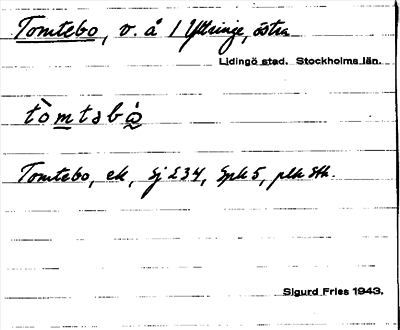 Tomtebo, v. å 1 Yttringe, östra
Lidingö stad. Stockholms län.
tòmtəbó̰
Tomtebo, ek, Sj 234, Spk 5, plk Sth.
Sigurd Fries 1943.